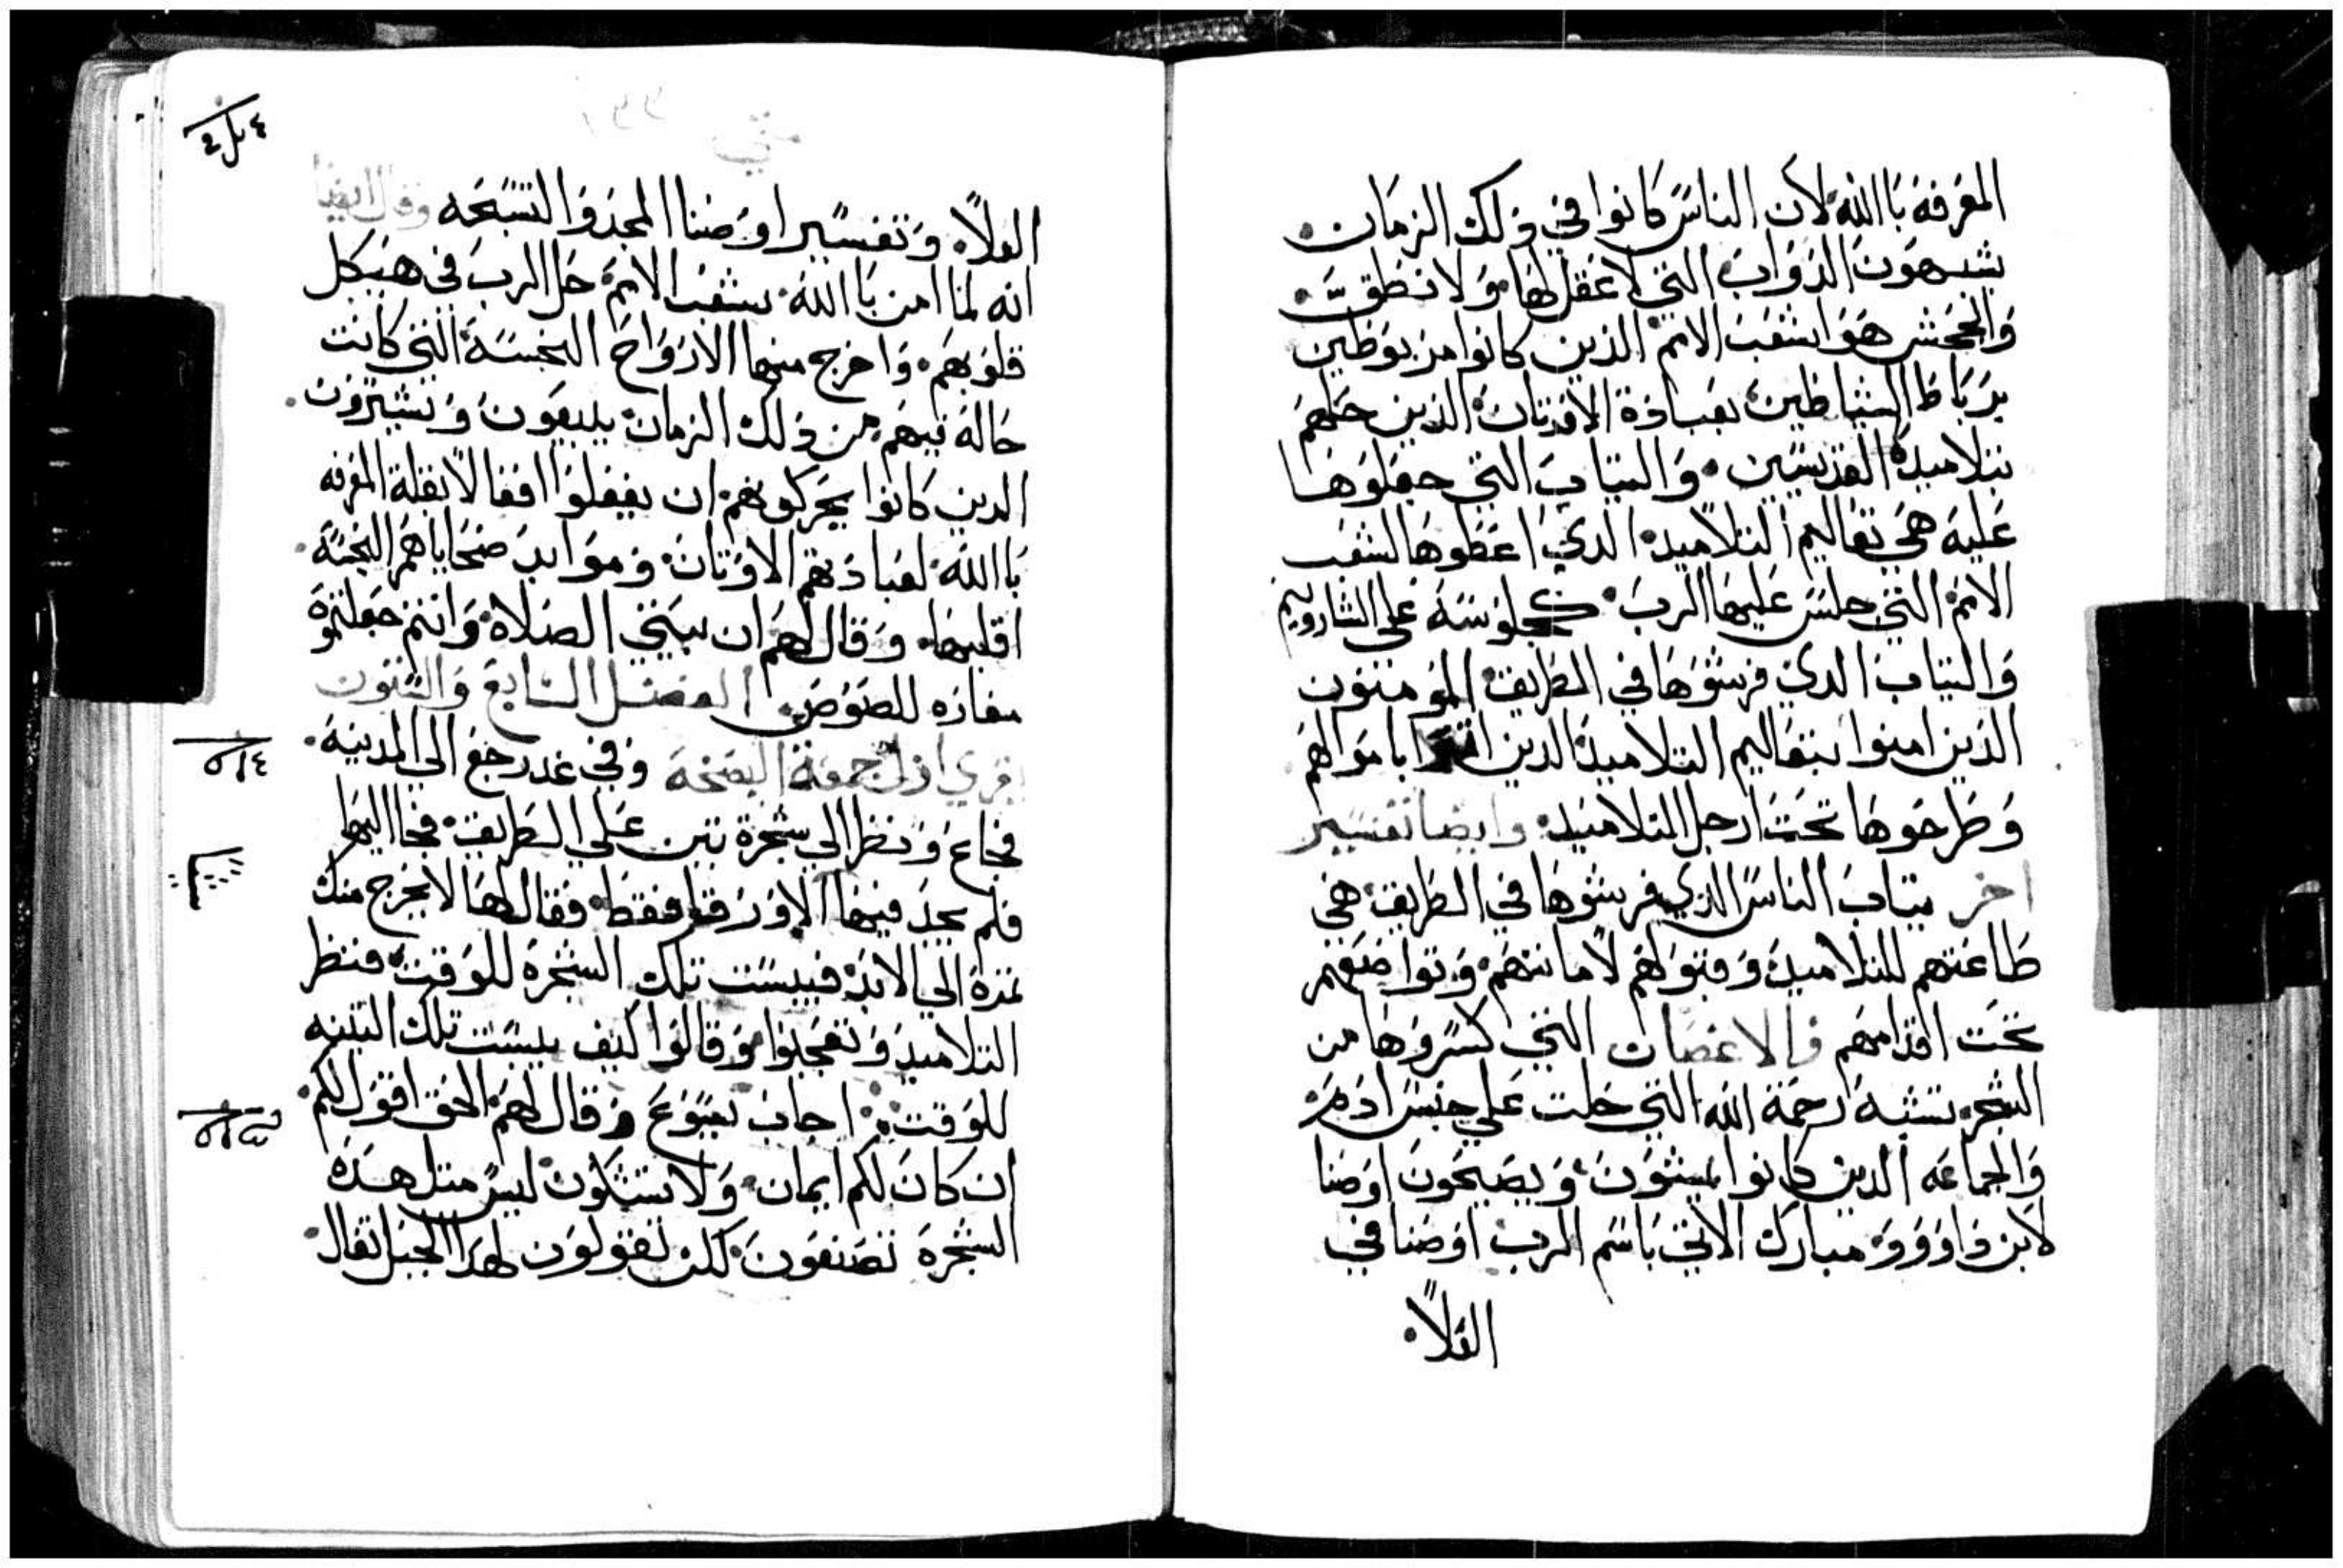 المعرفة بالله لان الناس كانوا في ذلك الزمان
يشبهون الدواب التي لا عقل لها ولا نطق
والجحش هوا شعب الامم الذين كانوا مربوطين
برباط الشياطين بعبادة الاوتان الذين حلهم
بتلاميدة القديسين والتياب التي جعلوها
عليه هي تعاليم التلاميد الدي اعطوها لشعب
الامم التي جلس عليها الرب كجلوسه على الشاروبيم
والتياب الدي فرشوها في الطريق المومنون
الذين امنوا بتعاليم التلاميد الدين اتوا باموالهم
وطرحوها تحت ارجل التلاميد وايضا تفسير
اخر تياب الناس الدي فرشوها في الطريق هي
طاعتهم للتلاميد وقبولهم لامانتهم وتواضعهم
تحت اقدامهم والاغصان التي كسروها من
الشجر تشبه رحمة الله التي حلت على جنس ادم
والجماعه الدين كانوا يمشون ويصيحون اوصنا
لابن داوود مبارك الاتي باسم الرب اوصنا في
العلا
متي
العلا وتفسير اوصنا المجد والتسبحه وقال ايضا
انه لما امن بالله شعب الامم حل الرب في هيكل
قلوبهم واخرج منها الارواح النجسة التي كانت
حالة فيهم من ذلك الزمان يبيعون ويشترون
الدين كانوا يحركونهم ان يفعلوا افعالا بقلة المعرفه
بالله لعبادتهم الاوتان وموايد ضحاياهم النجسة
اقلبها وقال لهم ان بيتي الصلاة وانتم جعلتموة
مغاره للصوص الفصل السابع والستون
يقري ازل جمعة البصخة وفي غد رجع الي المدينة
فجاع ونظر الي شجرة تين علي الطريق فجا اليها
فلم يجد فيها الا ورقا فقط فقال لها لا يخرج منك
تمرة الي الابد فيبست تلك الشجرة للوقت فنظر
التلاميد وتعجبوا وقالوا كيف يبست تلك التينه
للوقت اجاب يسوع وقال لهم الحق اقول لكم
ان كان لكم ايمان ولا تشكون ليس متل هده
الشجرة تصنعون لكن تقولون لهدا الجبل تعال